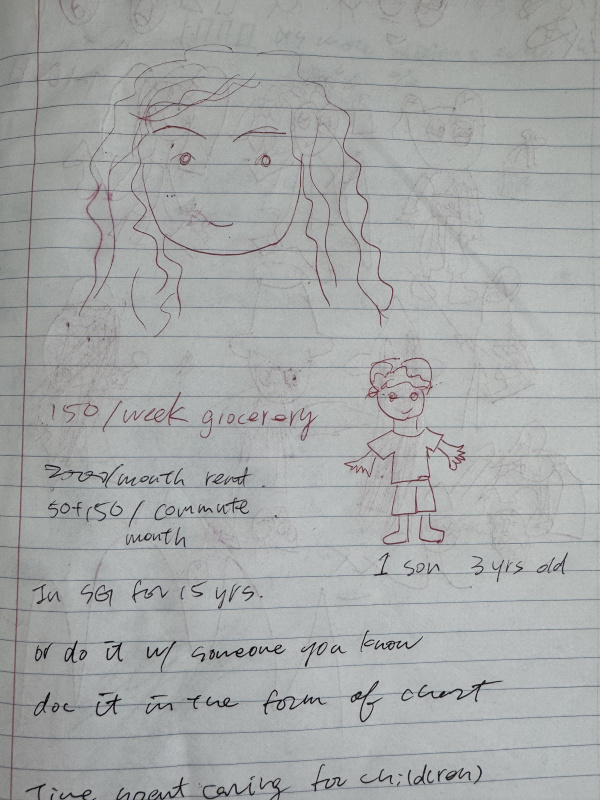 150/week grocerory
2000/month rent.
50+150/commute.
month
1 son 3 yrs old
In SG for 15 yrs.
or do it w/ someone you know
doc it in the form of chart
Time spent caring for children)